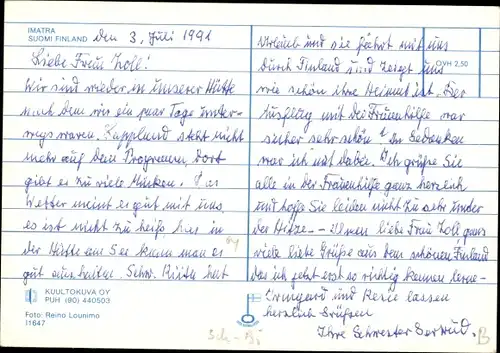 IMATRA
SUOMI FINLAND den 3. Juli 1991
Liebe Frau Zoll!
Wir sind wieder in unserer Hütte
nach dem wir ein paar Tage unter-
wegs waren. Lappland steht nicht
mehr auf dem Programm, dort
gibt es zu viele Mücken. Das
Wetter meint es gut mit uns,
es ist nicht zu heiß hier in
der Hütte am See kann man es
gut aushalten. Schw. Ruth hat
KUULTOKUVA OY
PUH (90) 440503
Foto: Reino Lounimo
I1647
Urlaub und sie fährt mit uns
durch Finland und zeigt uns
OVH 2,50
wie schön ihre Heimat ist. Der
Ausflug mit die Frauenhilfe war
sicher sehr schön! In Gedanken
war ich mit dabei. Ich grüße Sie
alle in der Frauenhilfe ganz herzlich
und hoffe Sie leiden nicht zu sehr unter
der Hitze. – Ihnen liebe Frau Zoll ganz
viele liebe Grüße aus dem schönen Finland
das ich jetzt erst so richtig kennen lerne.
Irmgard und lassen
herzlich Grüßen
Ihre Schwester Gertrud.
Sch-Bi
B